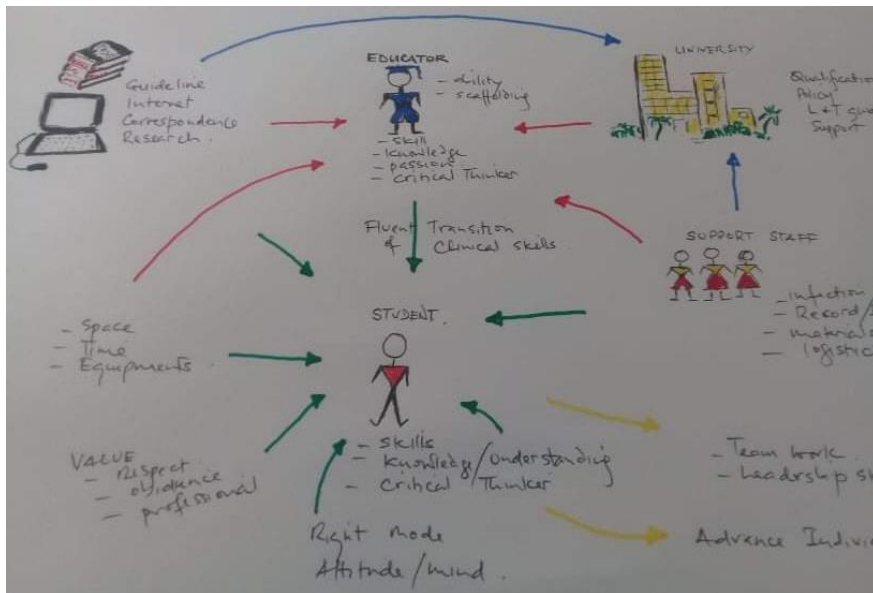 Guideline
Internet
Correspondence
Research.
EDUCATOR
- ability
- scaffolding
- skill
- knowledge
- passion
- critical Thinker
UNIVERSITY
Qualification
Policy
L+T
Support
Fluent Transition
of Clinical skills
SUPPORT STAFF
- infection
- Record/
- materials
- logistic
- Space
- Time
- Equipments
STUDENT.
- skills
- knowledge/understanding
- critical Thinker
VALUE
- Respect
- obidance
- professional
Right mode
Attitude/mind.
- Team work
- leadrship
Advance